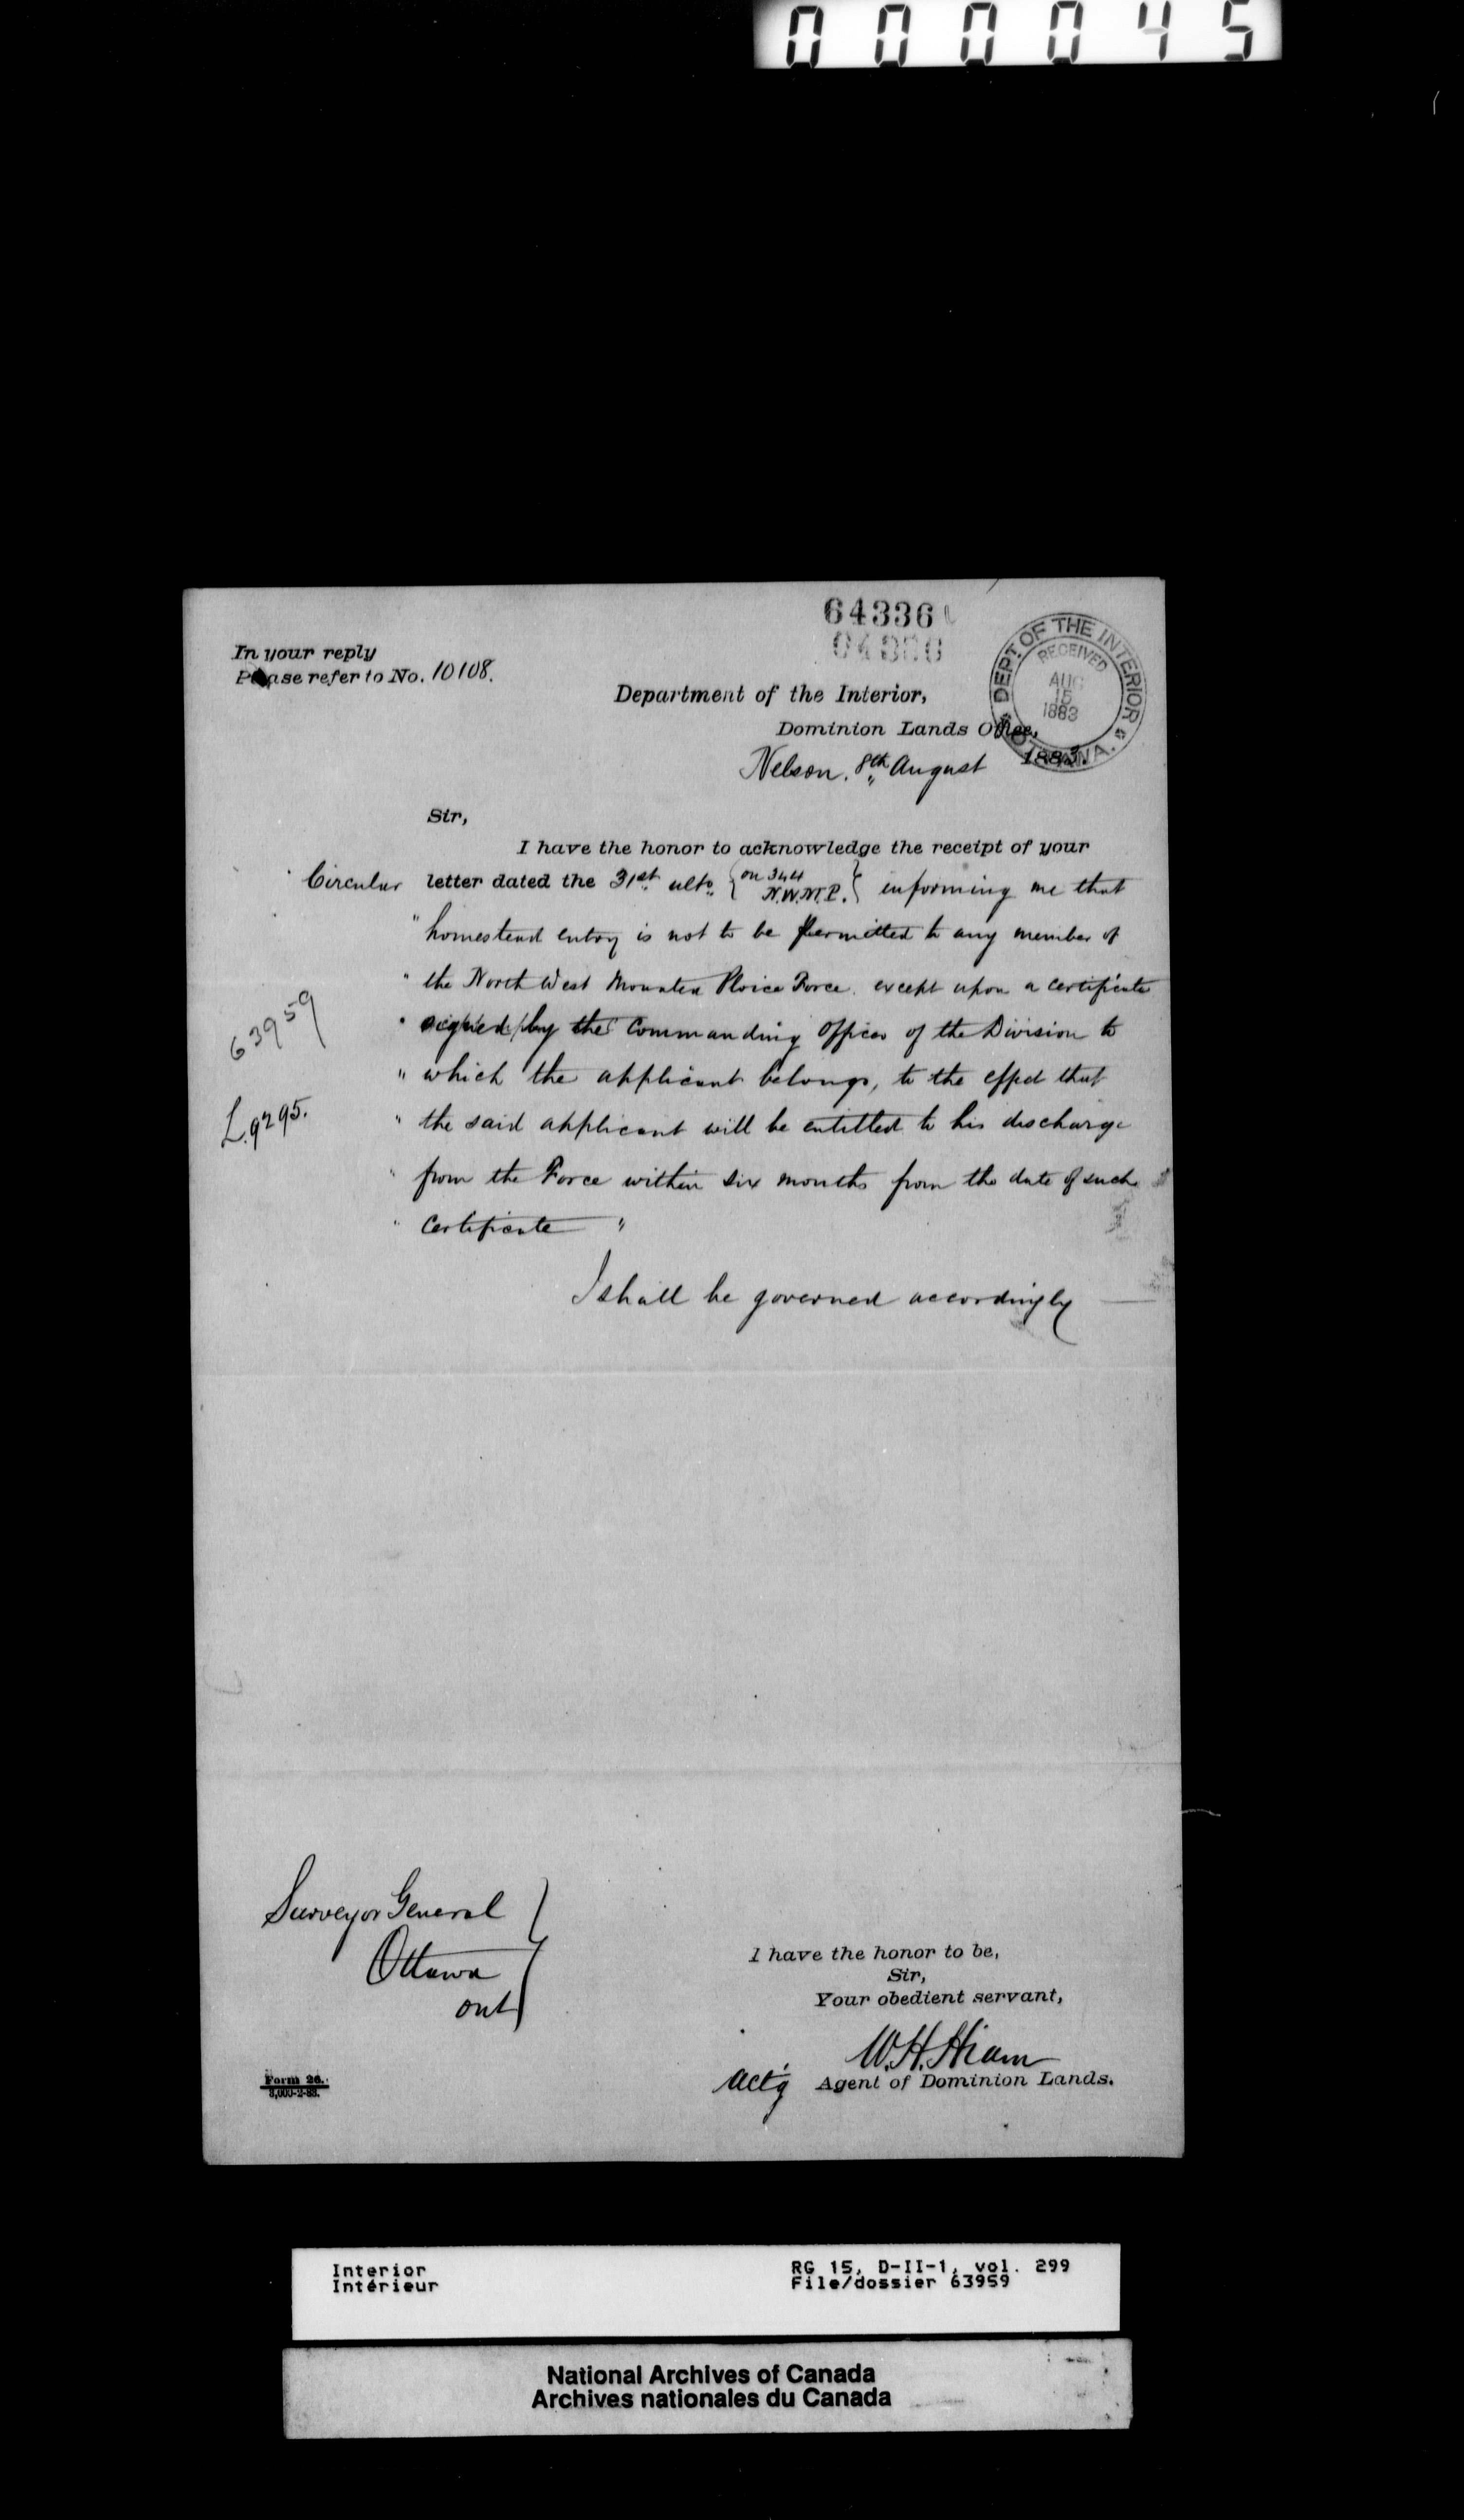 000045
64336
In your reply
Please refer to No. 10108.
DEPT. OF THE INTERIOR
RECEIVED
AUG
15
1883
OTTAWA.
Department of the Interior,
Dominion Lands Office,
Nelson. 8th August 1883.
Sir,
I have the honor to acknowledge the receipt of your
Circular letter dated the 31st ulto. {on 344 N.W.M.P.} informing me that
" homestead entry is not to be permitted to any member of
" the North West Mounted Ploice Force. except upon a certificate
" signed by the Commanding Officer of the Division to
" which the applicant belongs, to the effect that
" the said applicant will be entitled to his discharge
" from the Force within six months from the date of such
" Certificate "
63959
L.9295.
I shall be governed accordingly
Surveyor General
Ottawa
Ont
I have the honor to be,
Sir,
Your obedient servant,
W.H. Hiam
Act'g Agent of Dominion Lands.
Form 26.
3,000-2-83.
Interior
Intérieur
RG 15, D-II-1, vol. 299
File/dossier 63959
National Archives of Canada
Archives nationales du Canada